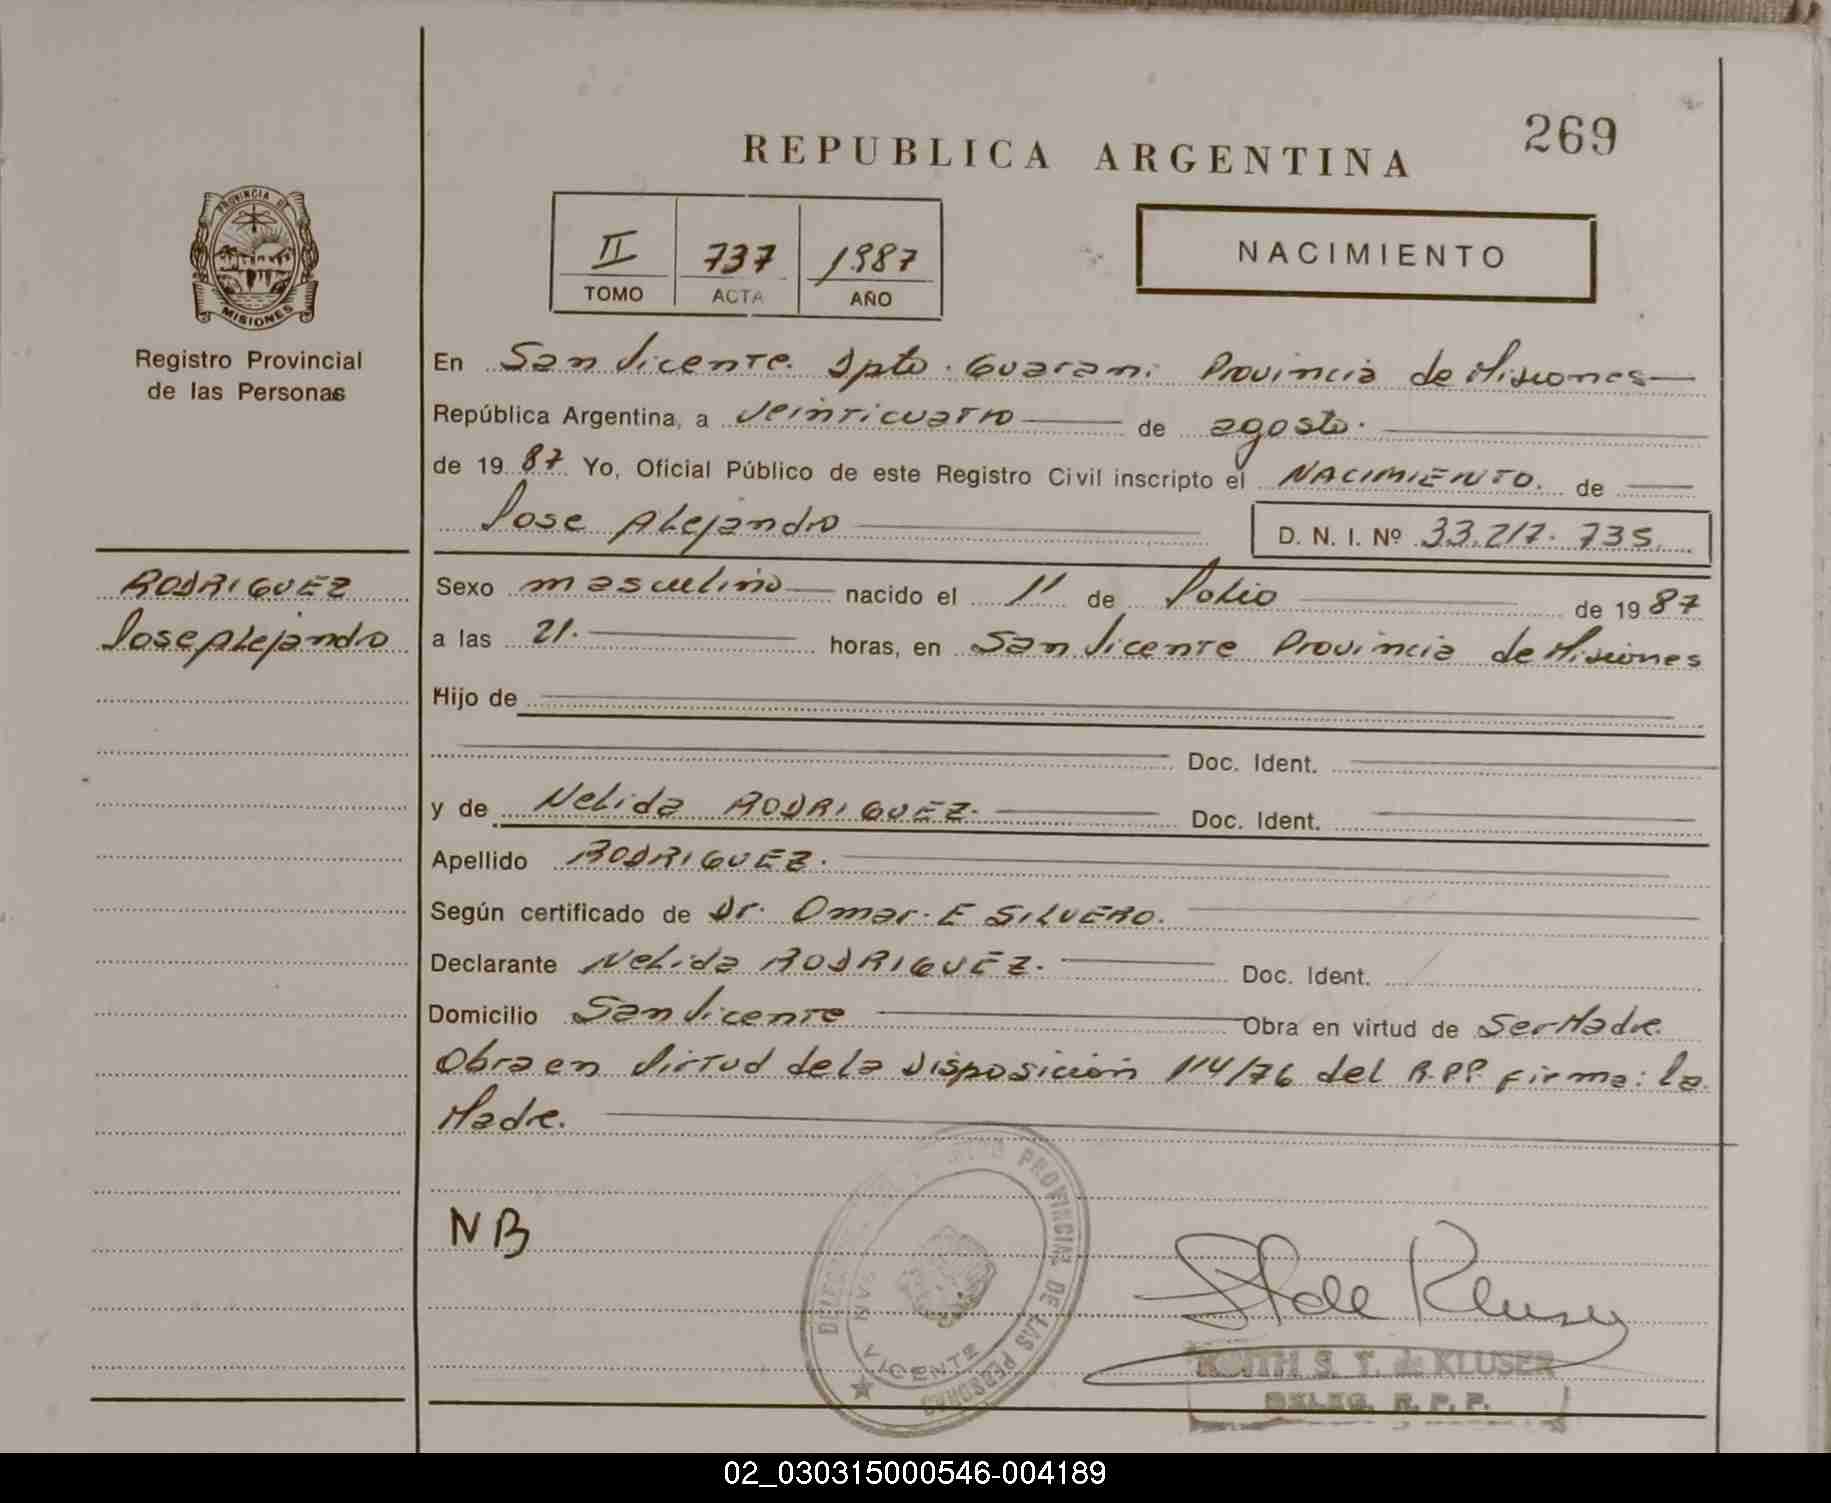 269
REPUBLICA ARGENTINA
II 737 1987
TOMO ACTA AÑO
NACIMIENTO
PROVINCIA DE
MISIONES
Registro Provincial
de las Personas
En San Vicente. Dpto. Guarani Provincia de Misiones
República Argentina, a Veinticuatro de agosto.
de 1987 Yo, Oficial Público de este Registro Civil inscripto el NACIMIENTO. de
Jose Alejandro D. N. I. Nº 33.217.735.
RODRIGUEZ
Jose Alejandro
Sexo masculino nacido el 11 de Julio de 1987
a las 21. horas, en San Vicente Provincia de Misiones
Hijo de
Doc. Ident.
y de Nelida RODRIGUEZ. Doc. Ident.
Apellido RODRIGUEZ.
Según certificado de Dr. Omar. E SILVERO.
Declarante Nelida RODRIGUEZ. Doc. Ident.
Domicilio San Vicente Obra en virtud de Ser Madre.
Obra en Virtud de la Disposición 114/76 del R.P.P. firma: la
Madre.
NB
PROVINCIAL DE LAS PERSONAS
VICENTE
de Kluser
S. T. de KLUSER
DELEG. R. P. P.
02_030315000546-004189